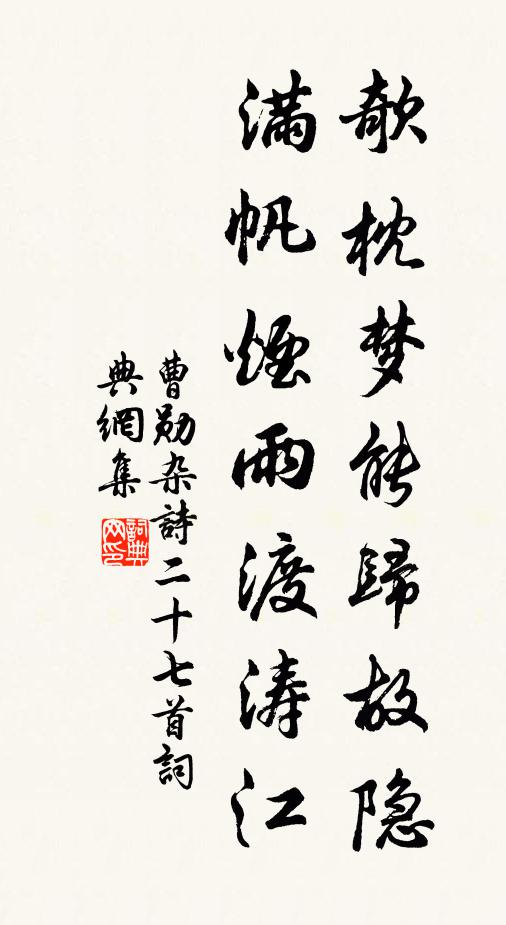 欹枕梦能歸故隐
滿帆煙雨渡涛江
曹勛杂詩二十七首詞
典網集
詞典网印